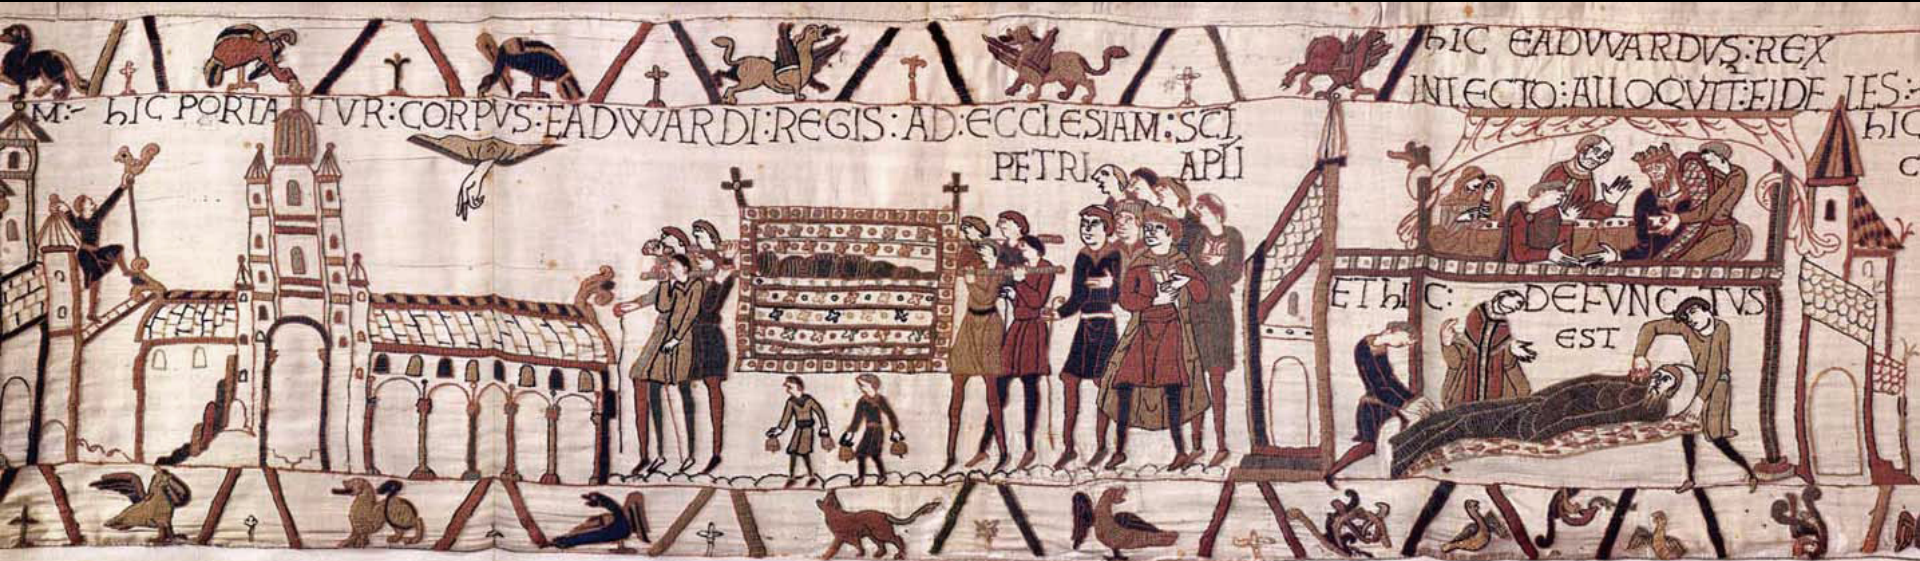 M:- hIC PORTATVR:CORPVS:EADWARDI:REGIS:AD:ECCLESIAM:SCI
PETRI APLI
hIC EADVVARDVS:REX
INLECTO:ALLOQVIT:FIDELES:-
ET hIC: DEFVNCTVS
EST
hIC
C